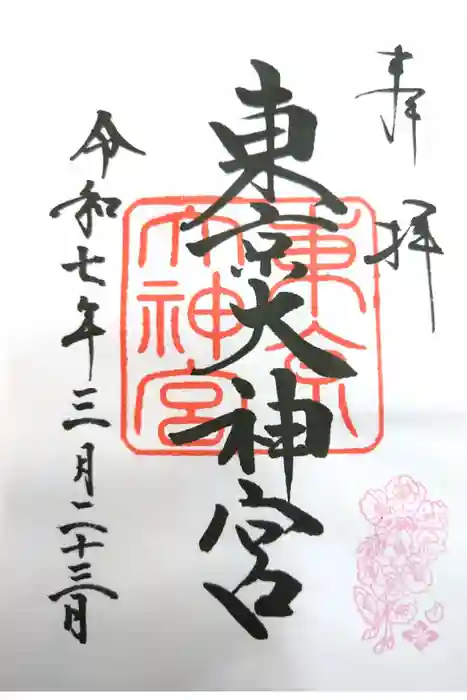 奉拝
東京大神宮
東京大神宮
令和七年三月二十三日